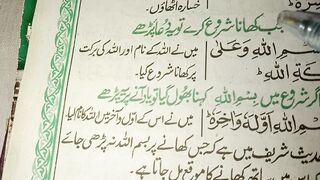 خسارہ اٹھاؤں۔
جب کھانا شروع کرے تو یہ دعا پڑھے
سْمِ اللّٰهِ وَعَلٰى
میں نے اللہ کے نام اور اللہ کی برکت
كَةِ اللّٰهِ ط
پر کھانا شروع کیا۔
اگر شروع میں بِسْمِ اللّٰهِ کہنا بھول گیا تو یاد آنے پر یہ پڑھے
سْمِ اللّٰهِ اَوَّلَهٗ وَاٰخِرَهٗ ط
میں نے اس کے اول و آخر میں اللہ کا نام لیا۔
حدیث شریف میں ہے کہ جس کھانے پر بسم اللہ نہ پڑھی جائے
اس میں ساتھ کھانے کا موقع مل جاتا ہے۔